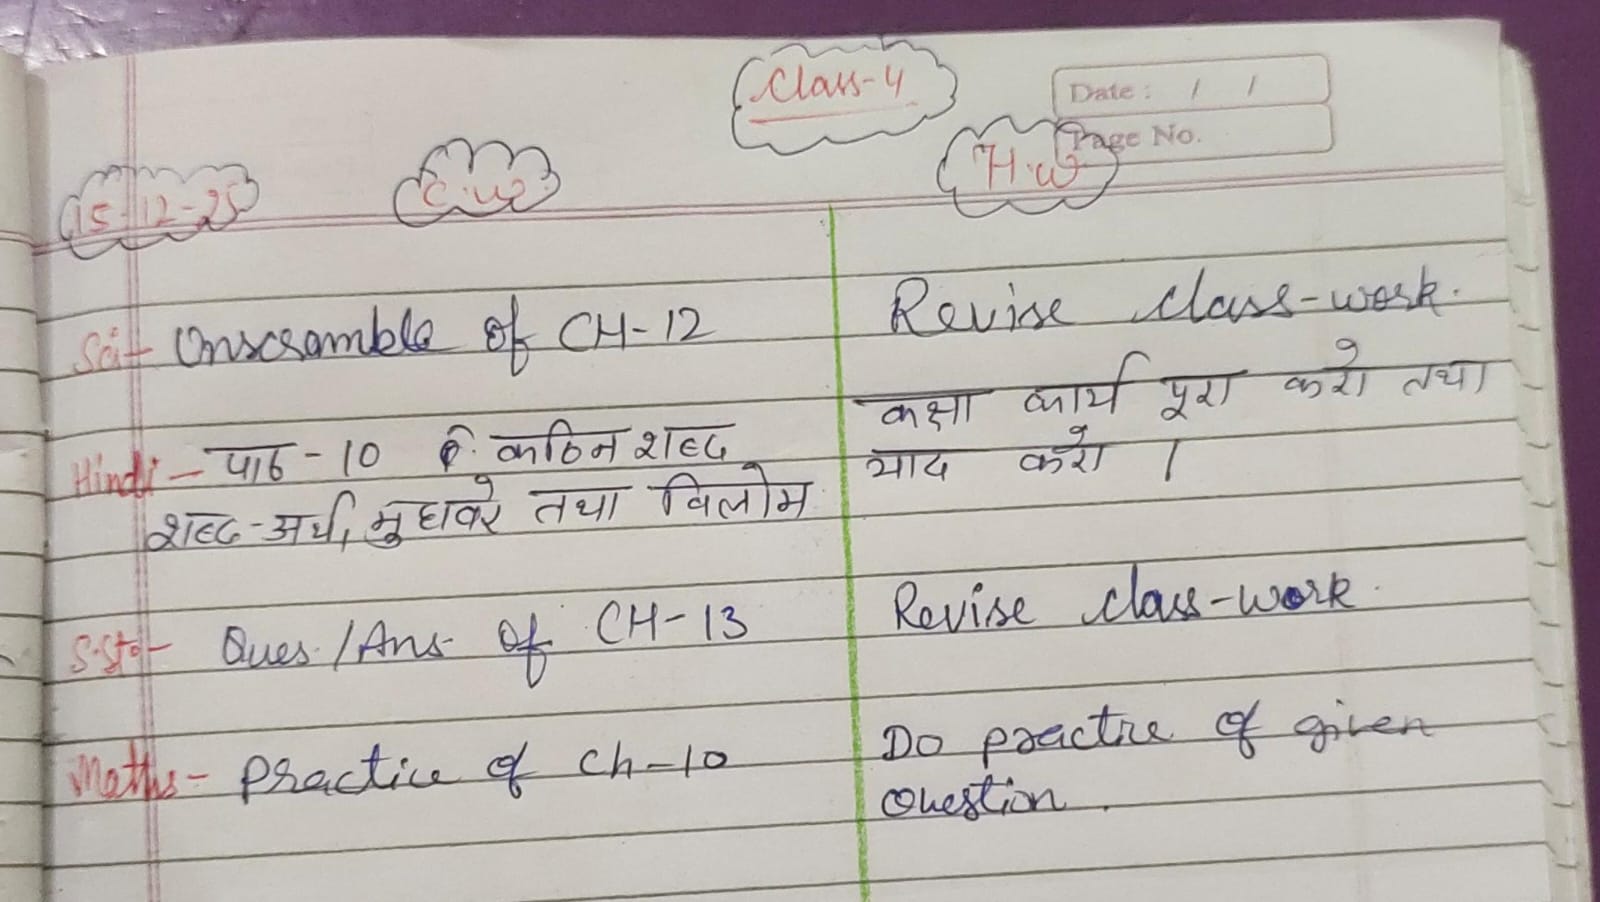 Class-4
Date : / /
Page No.
15-12-25
C.W.
H.W
Sci- Unscramble of CH-12
Revise class-work.
Hindi- पाठ-10 के कठिन शब्द
शब्द-अर्थ, मुहावरे तथा विलोम
कक्षा कार्य पूरा करो तथा
याद करो ।
S.St- Ques./Ans. of CH-13
Revise class-work.
Maths- Practice of Ch-10
Do practice of given
question.